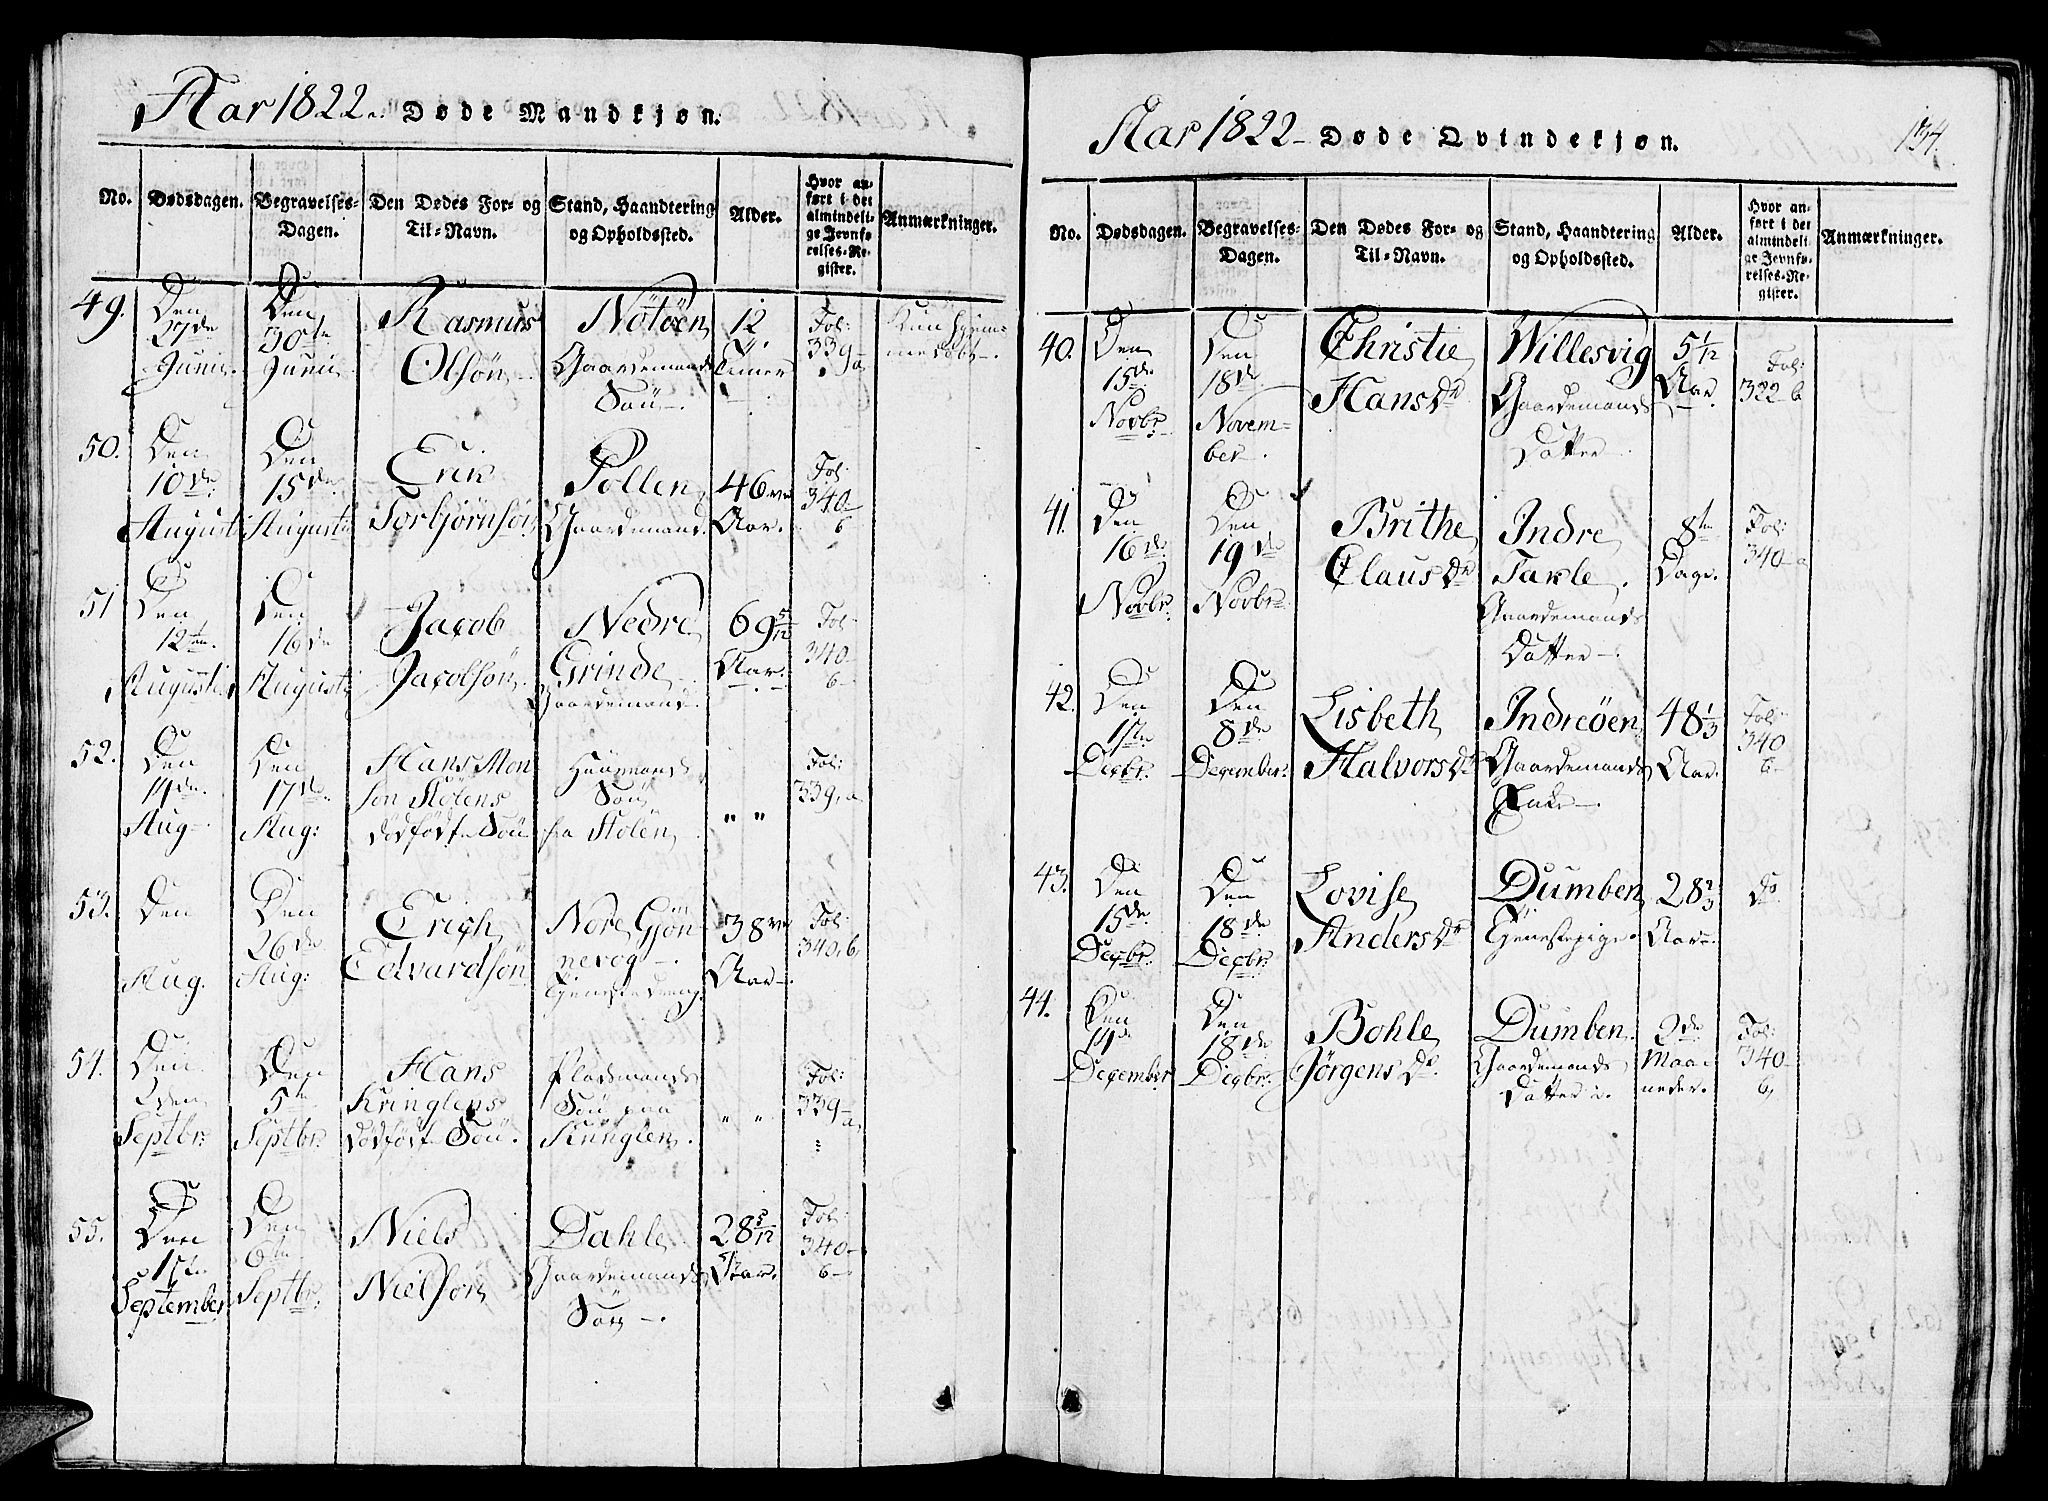 Aar 1822. Døde Mandkjøn.
No.
Dødsdagen.
Begravelses-
Dagen.
Den Dødes For- og
Til-Navn.
Stand, Haandtering
og Opholdssted.
Alder.
Hvor an-
ført i det
almindeli-
ge Jevnfø-
relses-Re-
gister.
Anmærkninger.
49.
Den
27de
Junii.
Den
30te
Junii
Rasmus
Olsön
Nötöen
Gaardemands
Sön
12
Timer
Fol:
339 a
Kun hjem-
me döbt
50.
Den
10de
Augusti
Den
15de
Augusti
Erik
Torbjörnsön
Pollen
Gaardemand.
46
Aar.
Fol:
340
b
51
Den
12te
Augusti
Den
16de
Augusti
Jacob
Jacobsön
Nedre
Grinde
Gaardemand.
69 5/12
Aar.
Fol:
340
b
52.
Den
14de.
Aug
Den
17de.
Aug:
Hans Mon
son Stölens
dödfödte Sön
Huusmands
Sön
fra Stölen
" "
Fol:
339, a
53.
Den
Aug.
Den
26de
Aug:
Erich
Edvardsön
Nore Gjön
nevog
Tjenestedreng.
38
Aar
Fol
340, b
54.
Den
Septbr:
Den
5te
Septbr:
Hans
Kringlens
dödfödte Sön.
Pladsmands
Sön paa
Kringlen.
" "
Fol:
339 a
55.
Den
1ste
September
Den
6te
Septbr:
Niels
Nielsön
Dahle
Gaardemands
Sön
28 5/12
Aar.
Fol:
340
b
Aar 1822 Døde Qvindekjøn.
134.
No.
Dødsdagen.
Begravelses-
Dagen.
Den Dødes For- og
Til-Navn.
Stand, Haandtering
og Opholdssted.
Alder.
Hvor an-
ført i det
almindeli-
ge Jevnfø-
relses-Re-
gister.
Anmærkninger.
40.
Den
15de
Novbr.
Den
18de
Novem-
ber.
Christie
Hans Dr
Willesvig
Gaardemands
Datter
5 1/12
Aar.
Fol:
322 b
41.
Den
16de
Novbr.
Den
19de
Novbr
Brithe
Claus Dr
Indre
Takle.
Gaardemands
Datter
8te
Dage.
Fol:
340 a
42.
Den
1ste
Decbr.
Den
8de
December.
Lisbeth
Halvors Dr
Indreöen
Gaardemands
Enke
48 1/3
Aar.
Fol:
340
b
43.
Den
15de
Decbr.
Den
18de
Decbr.
Lovise
Anders Dr
Dumben
Tjenestepige
28 2/3
Aar
do.
44.
Den
14de
December
Den
18de
Decbr.
Bohle
Jörgens Dr.
Dumben
Gaardemands
Datter
2de
Maa-
neder.
Fol:
340
b